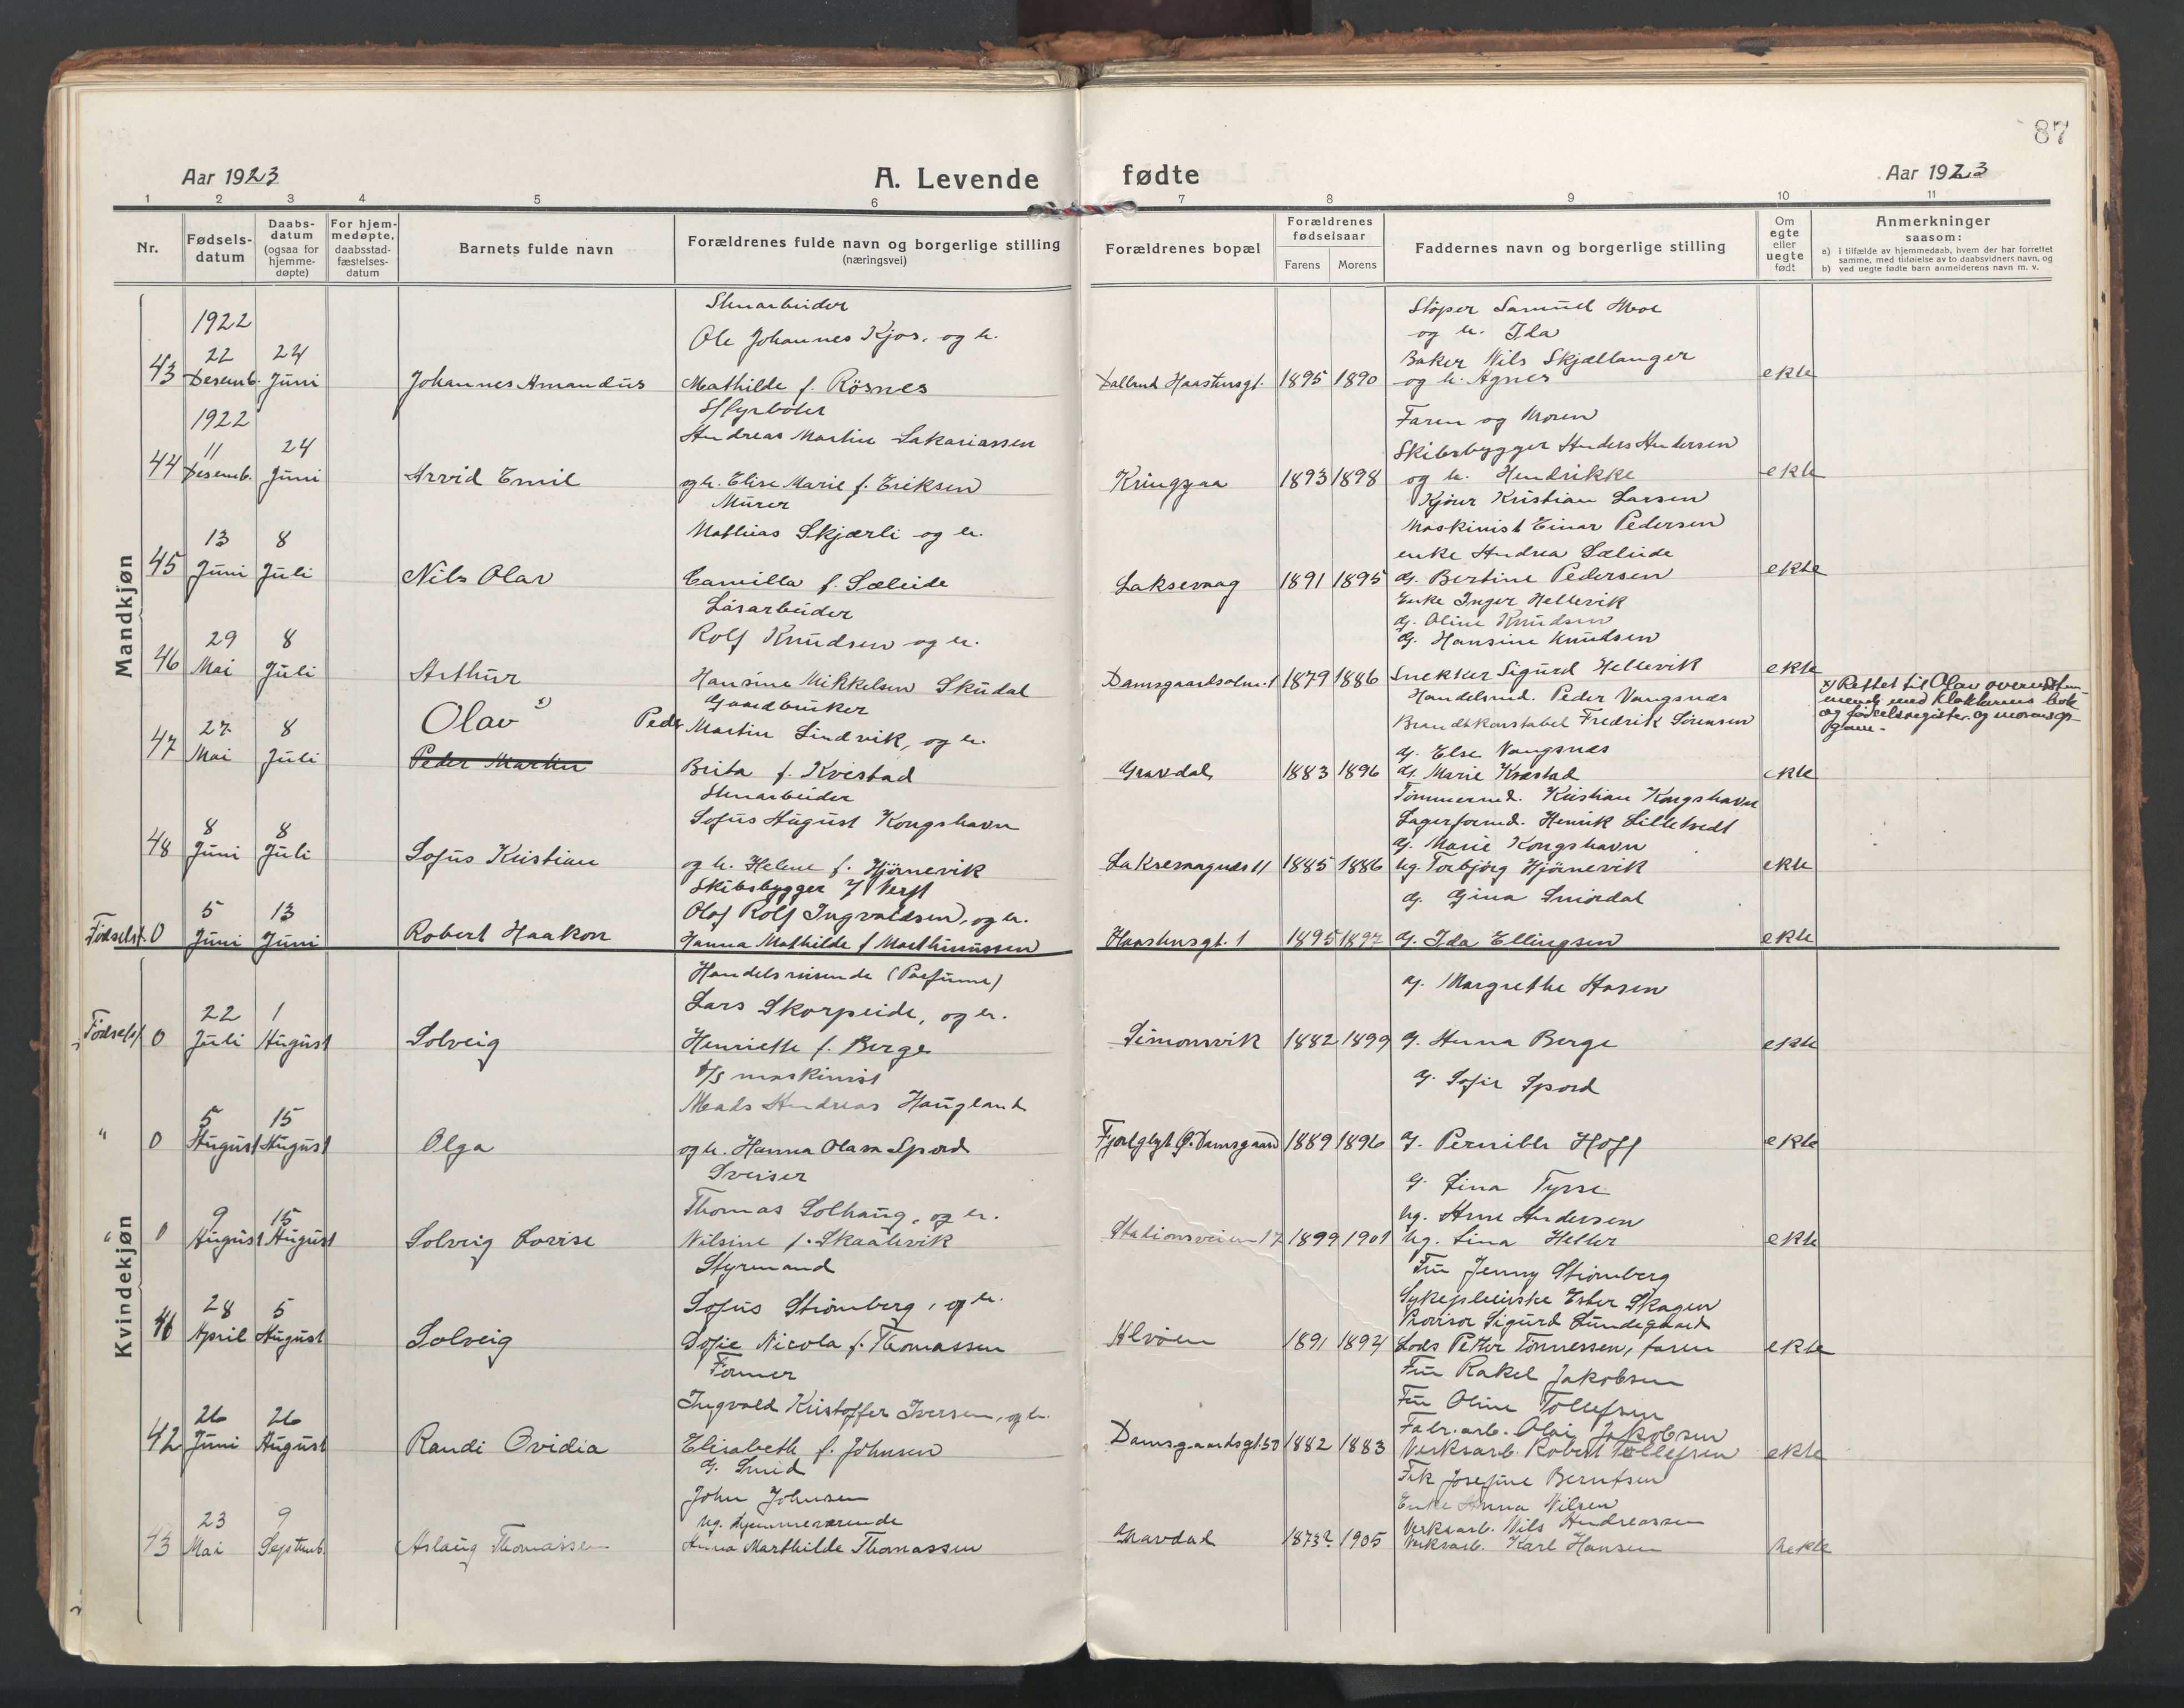 87
Aar 1923
A. Levende fødte
Aar 1923
1 2 3 4 5 6 7 8 9 10 11
Nr.
Fødsels-datum
Daabs-datum (ogsaa for hjemme-døpte)
For hjem-medøpte, daabsstad-fæstelses-datum
Barnets fulde navn
Forældrenes fulde navn og borgerlige stilling (næringsvei)
Forældrenes bopæl
Forældrenes fødselsaar
Farens Morens
Faddernes navn og borgerlige stilling
Om egte eller uegte født
Anmerkninger saasom:
a) I tilfælde av hjemmedaab, hvem der har forrettet samme, med tilføielse av to daabsvidners navn, og
b) ved uegte fødte barn anmelderens navn m. v.
Mandkjøn
1922
43 22 Desemb. 24 Juni Johannes Amandus
Ole Johannes Kjos, og h.
Mathilde f. Rösnes
Haastensgt. 1895 1890
Stöper Samuel Moe
og h. Ida
Baker Nils Skjællanger
og h. Agnes
ekte
1922
44 11 Desemb. 24 Juni Arvid Emil
Fyrböter
Andreas Martin Sakariassen
og h. Elise Marie f. Eriksen
Kringsjaa 1893 1898
Faren og Moren
Skibsbygger Anders Andersen
og h. Hendrikke
ekte
45 13 Juni 8 Juli Nils Olav
Murer
Mathias Skjærli og h.
Camilla f. Sæleide
Laksevaag 1891 1895
Kristian Larsen
Maskinist Einar Pedersen
enke Andrea Sæleide
G. Bertine Pedersen
ekte
46 29 Mai 8 Juli Arthur
Løsarbeider
Rolf Knudsen og h.
Hansine Mikkelsen Skudal
Damsgaardsalm. 1 1879 1886
Enke Inger Hellevik
G. Oline Knudsen
G. Hansine Knudsen
Snekker Sigurd Hellevik
ekte
47 27 Mai 8 Juli Olav x)
Peder Martin
Gaardbruker
Peder Martin Lindvik, og h.
Brita f. Kvestad
Gravdal 1883 1896
Handelsmd. Peder Vangsnes
Brandkonstabel Fredrik Sörensen
G. Else Vangsnes
G. Marie Kvestad
ekte
x) Rettet til Olav overensstem-
mende med Klokkerens bok
og fødselsregister og morens op-
gave.
48 8 Juni 8 Juli Sofus Kristian
Sofus August Kongshavn
og h. Helene f. Hjörnevik
Laksevaagnes 11 1885 1886
Tömmermd. Kristian Kongshavn
Lagerformd. Henrik Lilletvedt
G. Marie Kongshavn
Ug. Torbjörg Hjörnevik
ekte
Fødselst. 0 5 Juni 13 Juni Robert Haakon
Skibsbygger
Olaf Rolf Ingvaldsen, og h.
Hanna Mathilde f Marthinussen
Haastensgt. 1 1895 1897
G. Gina Smördal
G. Ida Ellingsen
ekte
Kvindekjøn
Fødselst. 0 22 Juli 1 August Solveig
Handelsreisende (Parfume)
Lars Skorpeide, og h.
Henriette f. Berge
Simonsvik 1882 1899
G. Margrethe Hosen
G. Anna Berge
ekte
" 0 5 August 15 August Olga
D/S maskinist
Mads Andreas Haugland
og h. Hanna Olava Spord
1889 1896
G. Sofie Spord
G. Pernille Hoff
ekte
" 0 9 August 15 August Solveig Lovise
Sveiser
Thomas Solhaug, og h.
Nilsine f. Skaalevik
Stationsveien 17 1899 1901
G. Lina Tysse
Ug. Arne Andersen
Ug. Lina Heller
ekte
41 28 April 5 August Solveig
Styrmand
Sofus Strömberg, og h.
Sofie Nicola f. Thomassen
Alvöen 1891 1892
Fru Jenny Strömberg
Sykepleierske Ester Skagen
Provisor Sigurd Lundegaard
Lods Petter Tönnessen, faren
ekte
42 26 Juni 26 August Randi Ovidia
Former
Ingvald Kristoffer Iversen, og h.
Elisabeth f. Johnsen
Damsgaardsgt. 50 1882 1883
Fru Rakel Jakobsen
Fru Oline Tollefsen
Fabr.arb. Olai Jakobsen
Verksarb. Robert Tollefsen
ekte
43 23 Mai 9 Septemb. Aslaug Thomassen
G. Smed
John Johnsen
Ug. hjemmeværende
Anna Marthilde Thomassen
Gravdal 1873? 1905
Frk Josefine Berntsen
Enke Anna Nilsen
Verksarb. Nils Andreassen
Verksarb. Karl Hansen
uekte